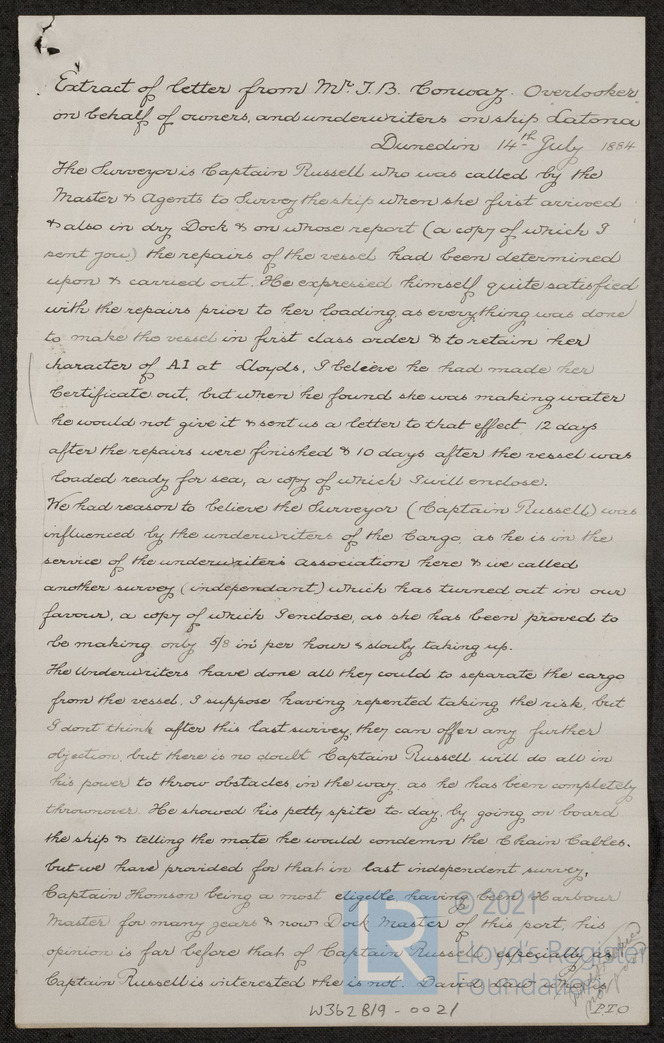 Extract of letter from Mr. J. B. Conway. Overlooker
on behalf of owners, and underwriters on ship Latona
Dunedin 14th July 1884
The Surveyor is Captain Russell who was called by the
Master & Agents to Survey the ship when she first arrived
& also in dry Dock & on whose report (a copy of which I
sent you) the repairs of the vessel had been determined
upon & carried out. He expressed himself quite satisfied
with the repairs prior to her loading, as everything was done
to make the vessel in first class order & to retain her
character of A1 at Lloyds, I believe he had made her
Certificate out, but when he found she was making water
he would not give it & sent us a letter to that effect 12 days
after the repairs were finished & 10 days after the vessel was
loaded ready for sea, a copy of which I will enclose.
We had reason to believe the Surveyor (Captain Russell) was
influenced by the underwriters of the Cargo, as he is in the
service of the underwriters association here & we called
another survey (independant) which has turned out in our
favour, a copy of which I enclose, as she has been proved to
be making only 5/8 in per hour & slowly taking up.
The Underwriters have done all they could to separate the cargo
from the vessel, I suppose having repented taking the risk, but
I dont think after this last survey, they can offer any further
objection, but there is no doubt Captain Russell will do all in
his power to throw obstacles in the way, as he has been completely
thrownover. He showed his petty spite to-day, by going on board
the ship & telling the mate he would condemn the Chain Cables.
but we have provided for that in last independent survey,
Captain Thomson being a most eligible having been Harbour
Master for many years & now Dock Master of this port, his
opinion is far before that of Captain Russell, especially as
Captain Russell is interested & he is not. David Law who is
P.T.O
W362B19 - 0021
© 2021
Lloyd's Register
Foundation
LR